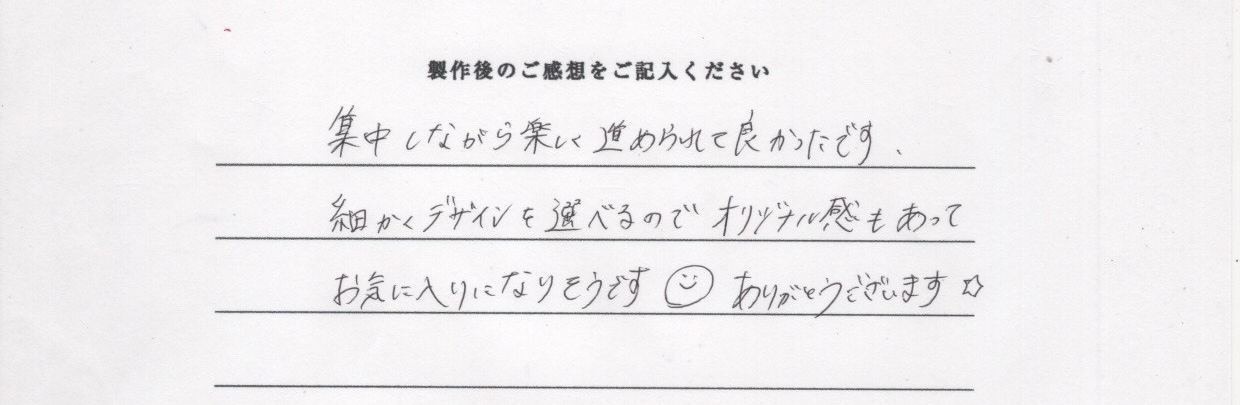 製作後のご感想をご記入ください
集中しながら楽しく進められて良かったです、
細かくデザインを選べるのでオリジナル感もあって
お気に入りになりそうです☺ありがとうございます☆